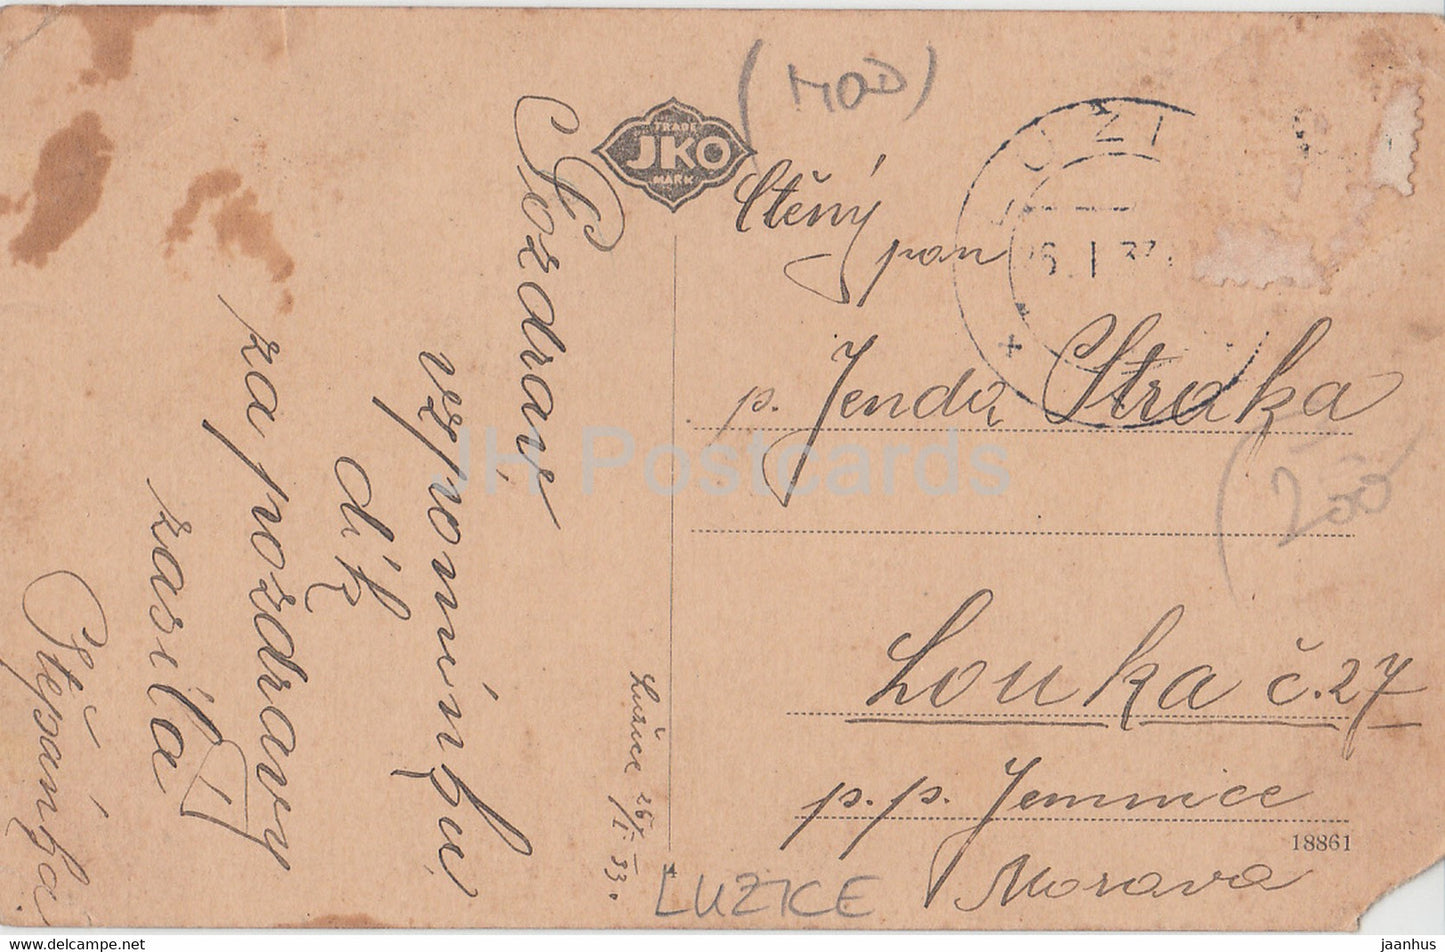 Pozdrav
vzpomínku
dík
za pozdravy
zasílá
Štěpánka
Lužice 26/I. 33.
TRADE
JKO
MARK
(MOD)
Ctěný
pan
UŽI
26.I.33
p. Jenda Straka
(200)
Louka č. 27
p. p. Jemnice
18861
Morava
LUZICE
JH Postcards
www.delcampe.net
jaanhus